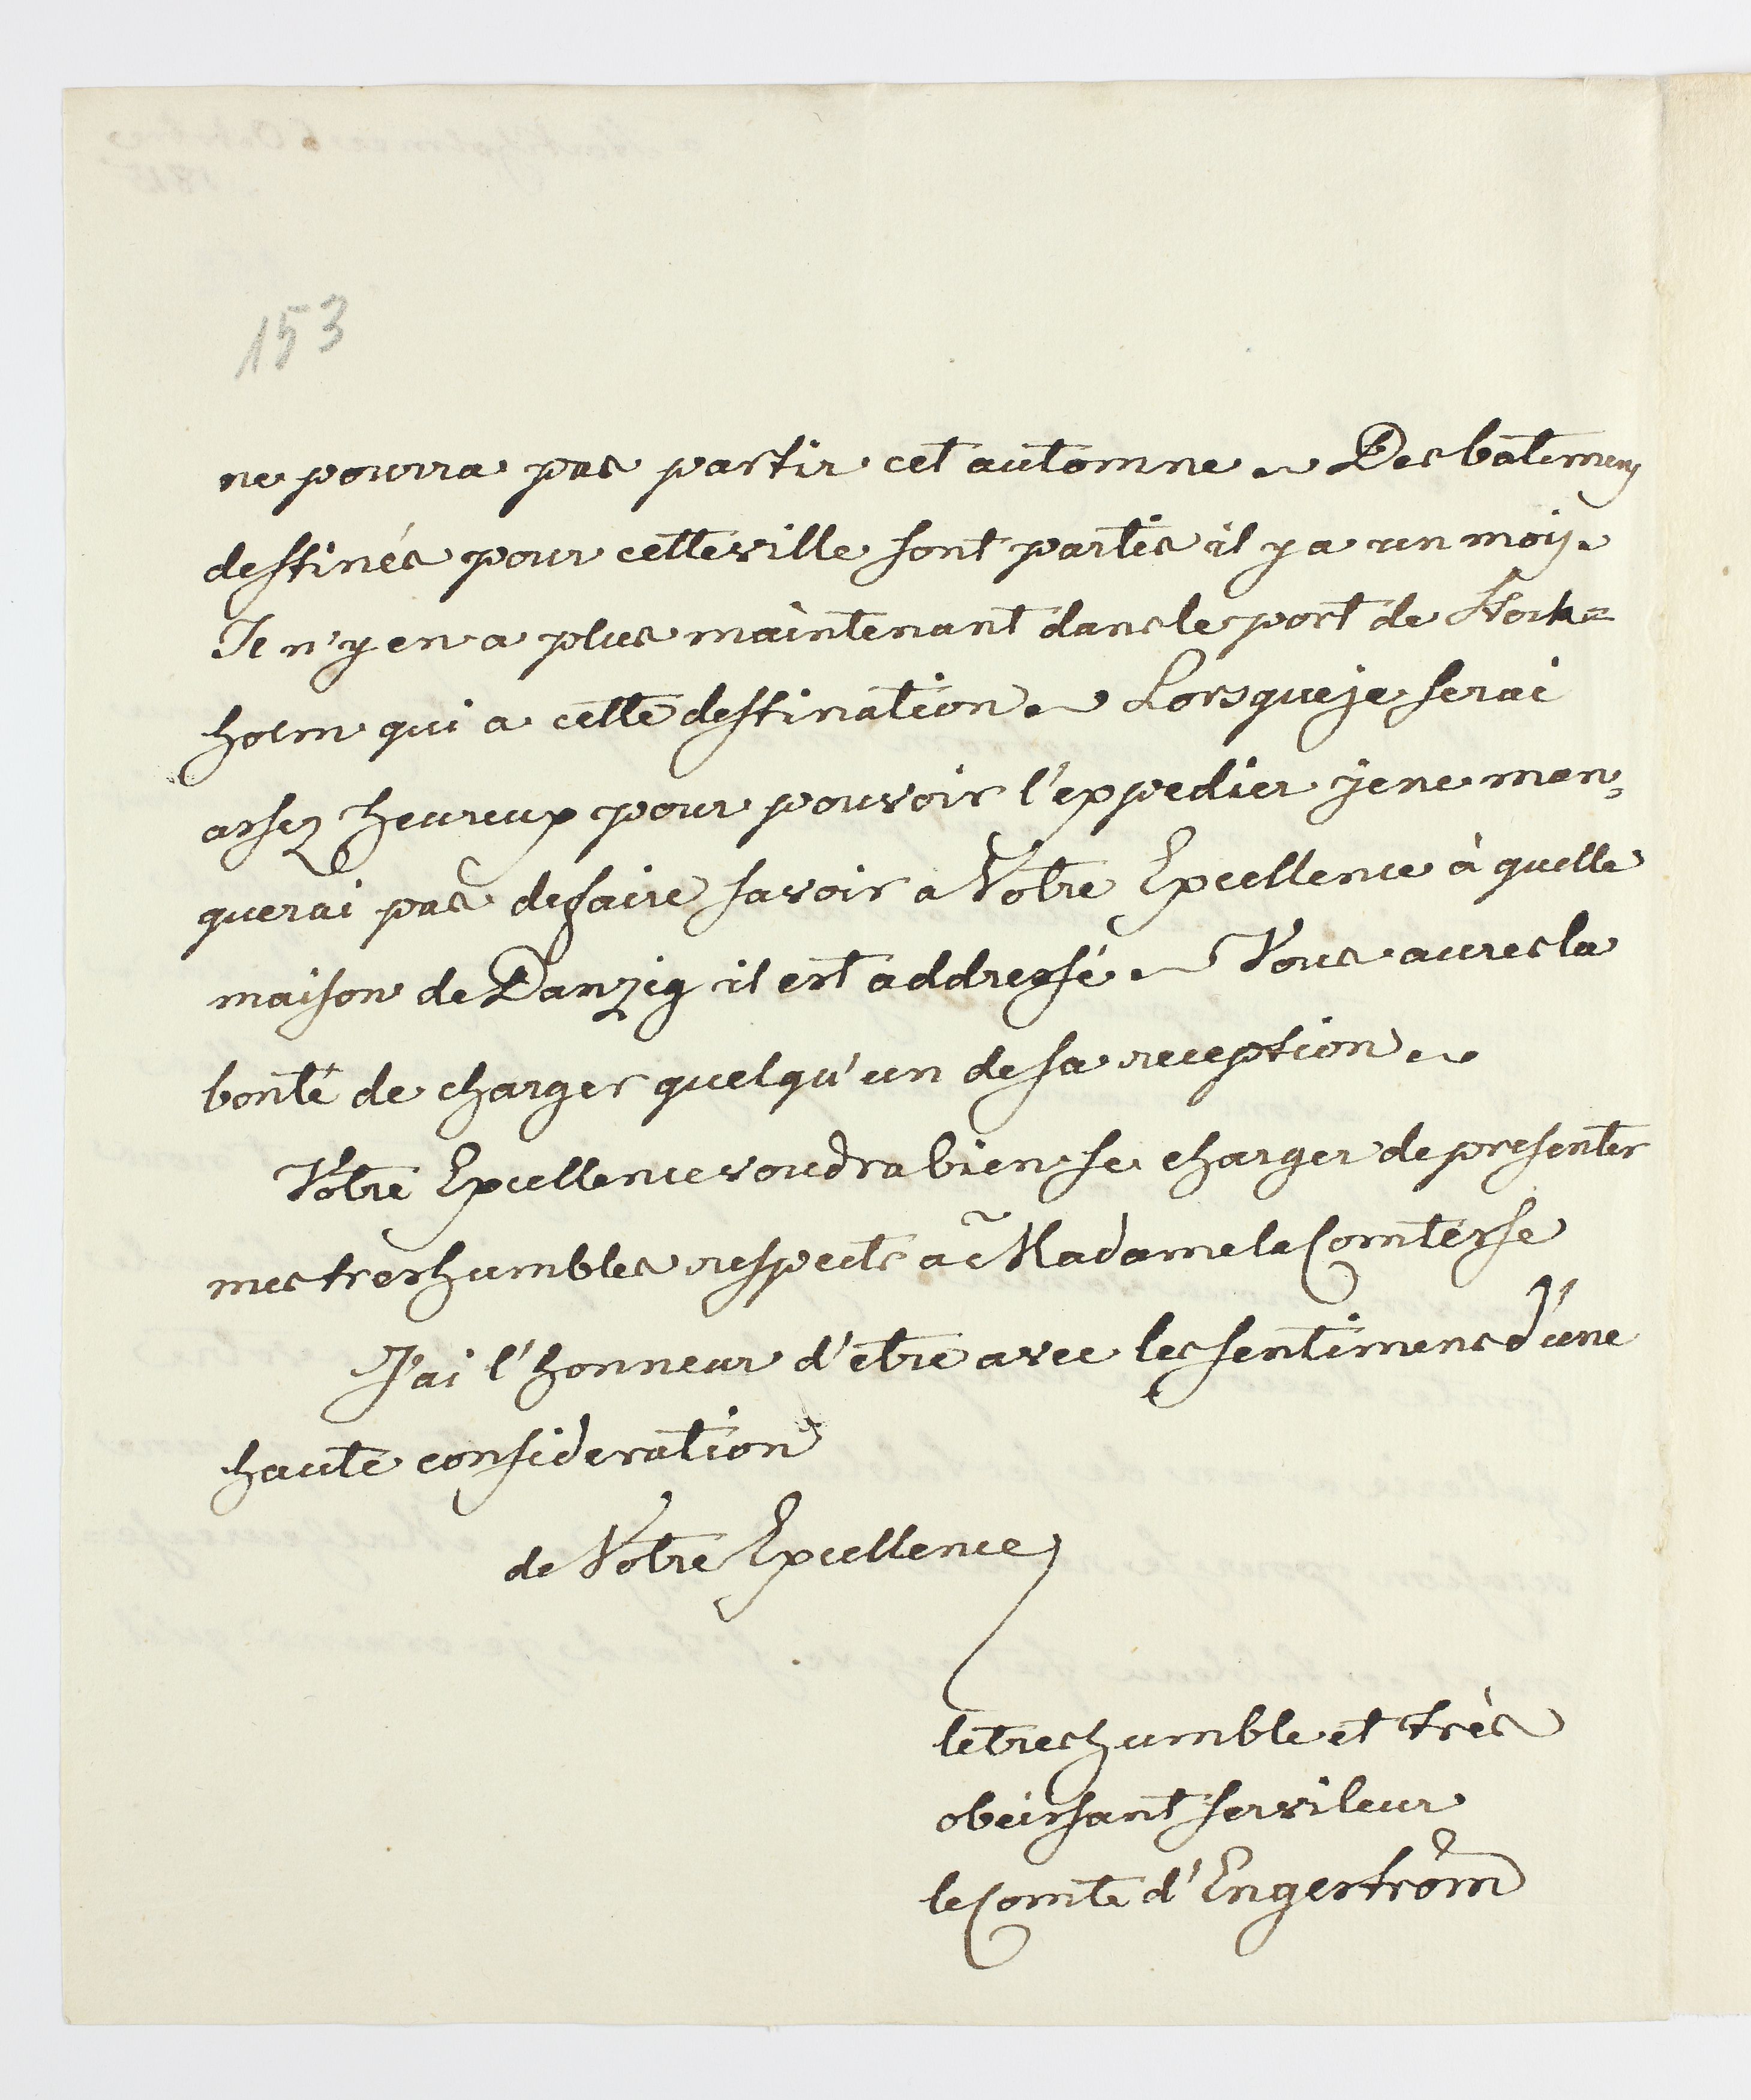 153
ne pourra pas partir cet automne. Des batimens
destinés pour cette ville sont partis il y a un mois.
Il n'y en a plus maintenant dans le port de Stock=
holm qui a cette destination. Lorsque je serai
assez heureux pour pouvoir l'expedier je ne man=
querai pas de faire savoir a Votre Excellence à quelle
maison de Danzig il est addressé. Vous aures la
bonté de charger quelqu'un de sa reception.
Votre Excellence voudra bien se charger de presenter
mes tres humbles respects a Madame la Comtesse
J'ai l'honneur d'etre avec les sentimens d'une
haute consideration
de Votre Excellence
le tres humble et très
obeissant serviteur
le Comte d'Engeström